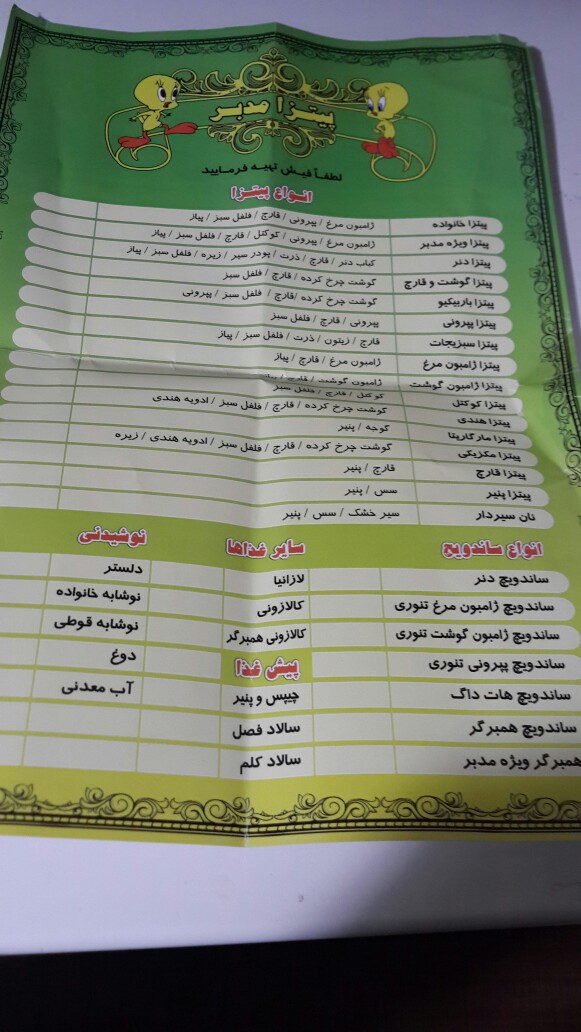 پیتزا مدبر
لطفاً فیش تهیه فرمایید
انواع پیتزا
پیتزا خانواده ژامبون مرغ / پپرونی / قارچ / فلفل سبز / پیاز
پیتزا ویژه مدبر ژامبون مرغ / پپرونی / کوکتل / قارچ / فلفل سبز / پیاز
پیتزا دنر کباب دنر / قارچ / ذرت / پودر سیر / زیره / فلفل سبز / پیاز
پیتزا گوشت و قارچ گوشت چرخ کرده / قارچ / فلفل سبز
پیتزا باربیکیو گوشت چرخ کرده / قارچ / فلفل سبز / پپرونی
پیتزا پپرونی پپرونی / قارچ / فلفل سبز
پیتزا سبزیجات قارچ / زیتون / ذرت / فلفل سبز / پیاز
پیتزا ژامبون مرغ ژامبون مرغ / قارچ / پیاز
پیتزا ژامبون گوشت ژامبون گوشت / قارچ / پیاز
پیتزا کوکتل کوکتل / قارچ / فلفل سبز
پیتزا هندی گوشت چرخ کرده / قارچ / فلفل سبز / ادویه هندی
پیتزا مارگاریتا گوجه / پنیر
پیتزا مکزیکی گوشت چرخ کرده / قارچ / فلفل سبز / ادویه هندی / زیره
پیتزا قارچ قارچ / پنیر
پیتزا پنیر سس / پنیر
نان سیردار سیر خشک / سس / پنیر
انواع ساندویچ
ساندویچ دنر
ساندویچ ژامبون مرغ تنوری
ساندویچ ژامبون گوشت تنوری
ساندویچ پپرونی تنوری
ساندویچ هات داگ
ساندویچ همبرگر
همبرگر ویژه مدبر
سایر غذاها
لازانیا
کالزونی
کالزونی همبرگر
پیش غذا
چیپس و پنیر
سالاد فصل
سالاد کلم
نوشیدنی
دلستر
نوشابه خانواده
نوشابه قوطی
دوغ
آب معدنی